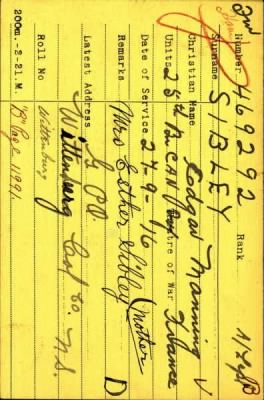 Number 469292 Rank A/Sgt
Surname SIBLEY
Christian Name Manning V
Units 25th Bn CAN Theatre of War France
Date of Service 27-9-16
Remarks Mrs Esther Sibley (Mother) D
Latest Address G PO
Wittenberg Col Co. N.S.
Roll No Wittenburg
B Page 11991.
200m.-2-21.M.